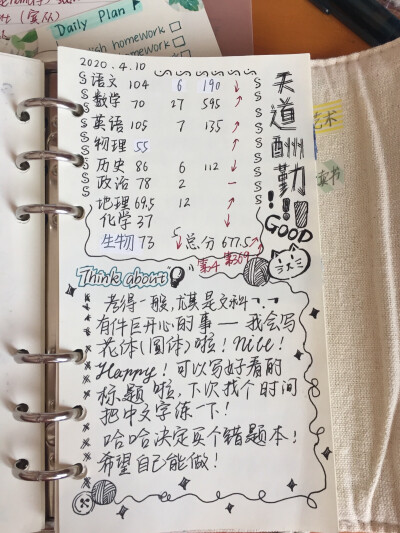 Daily Plan
homework
homework
2020.4.10
语文 104 6 190 ↓
数学 70 27 595 ↗
英语 105 7 135 ↗
物理 55 ↑
历史 86 6 112 ↓
政治 78 2 –
地理 69.5 12 ↑
化学 37 ↓
生物 73 ↓ 5 总分 677.5 ↑
第4 第369
天道酬勤!!!
GOOD
艺术
读书
Think about
考得一般,尤其是文科
有件巨开心的事——我会写
花体(圆体)啦!Nice!
Happy!可以写好看的
标题啦,下次找个时间
把中文字练一下!
哈哈决定买个错题本!
希望自己能做!